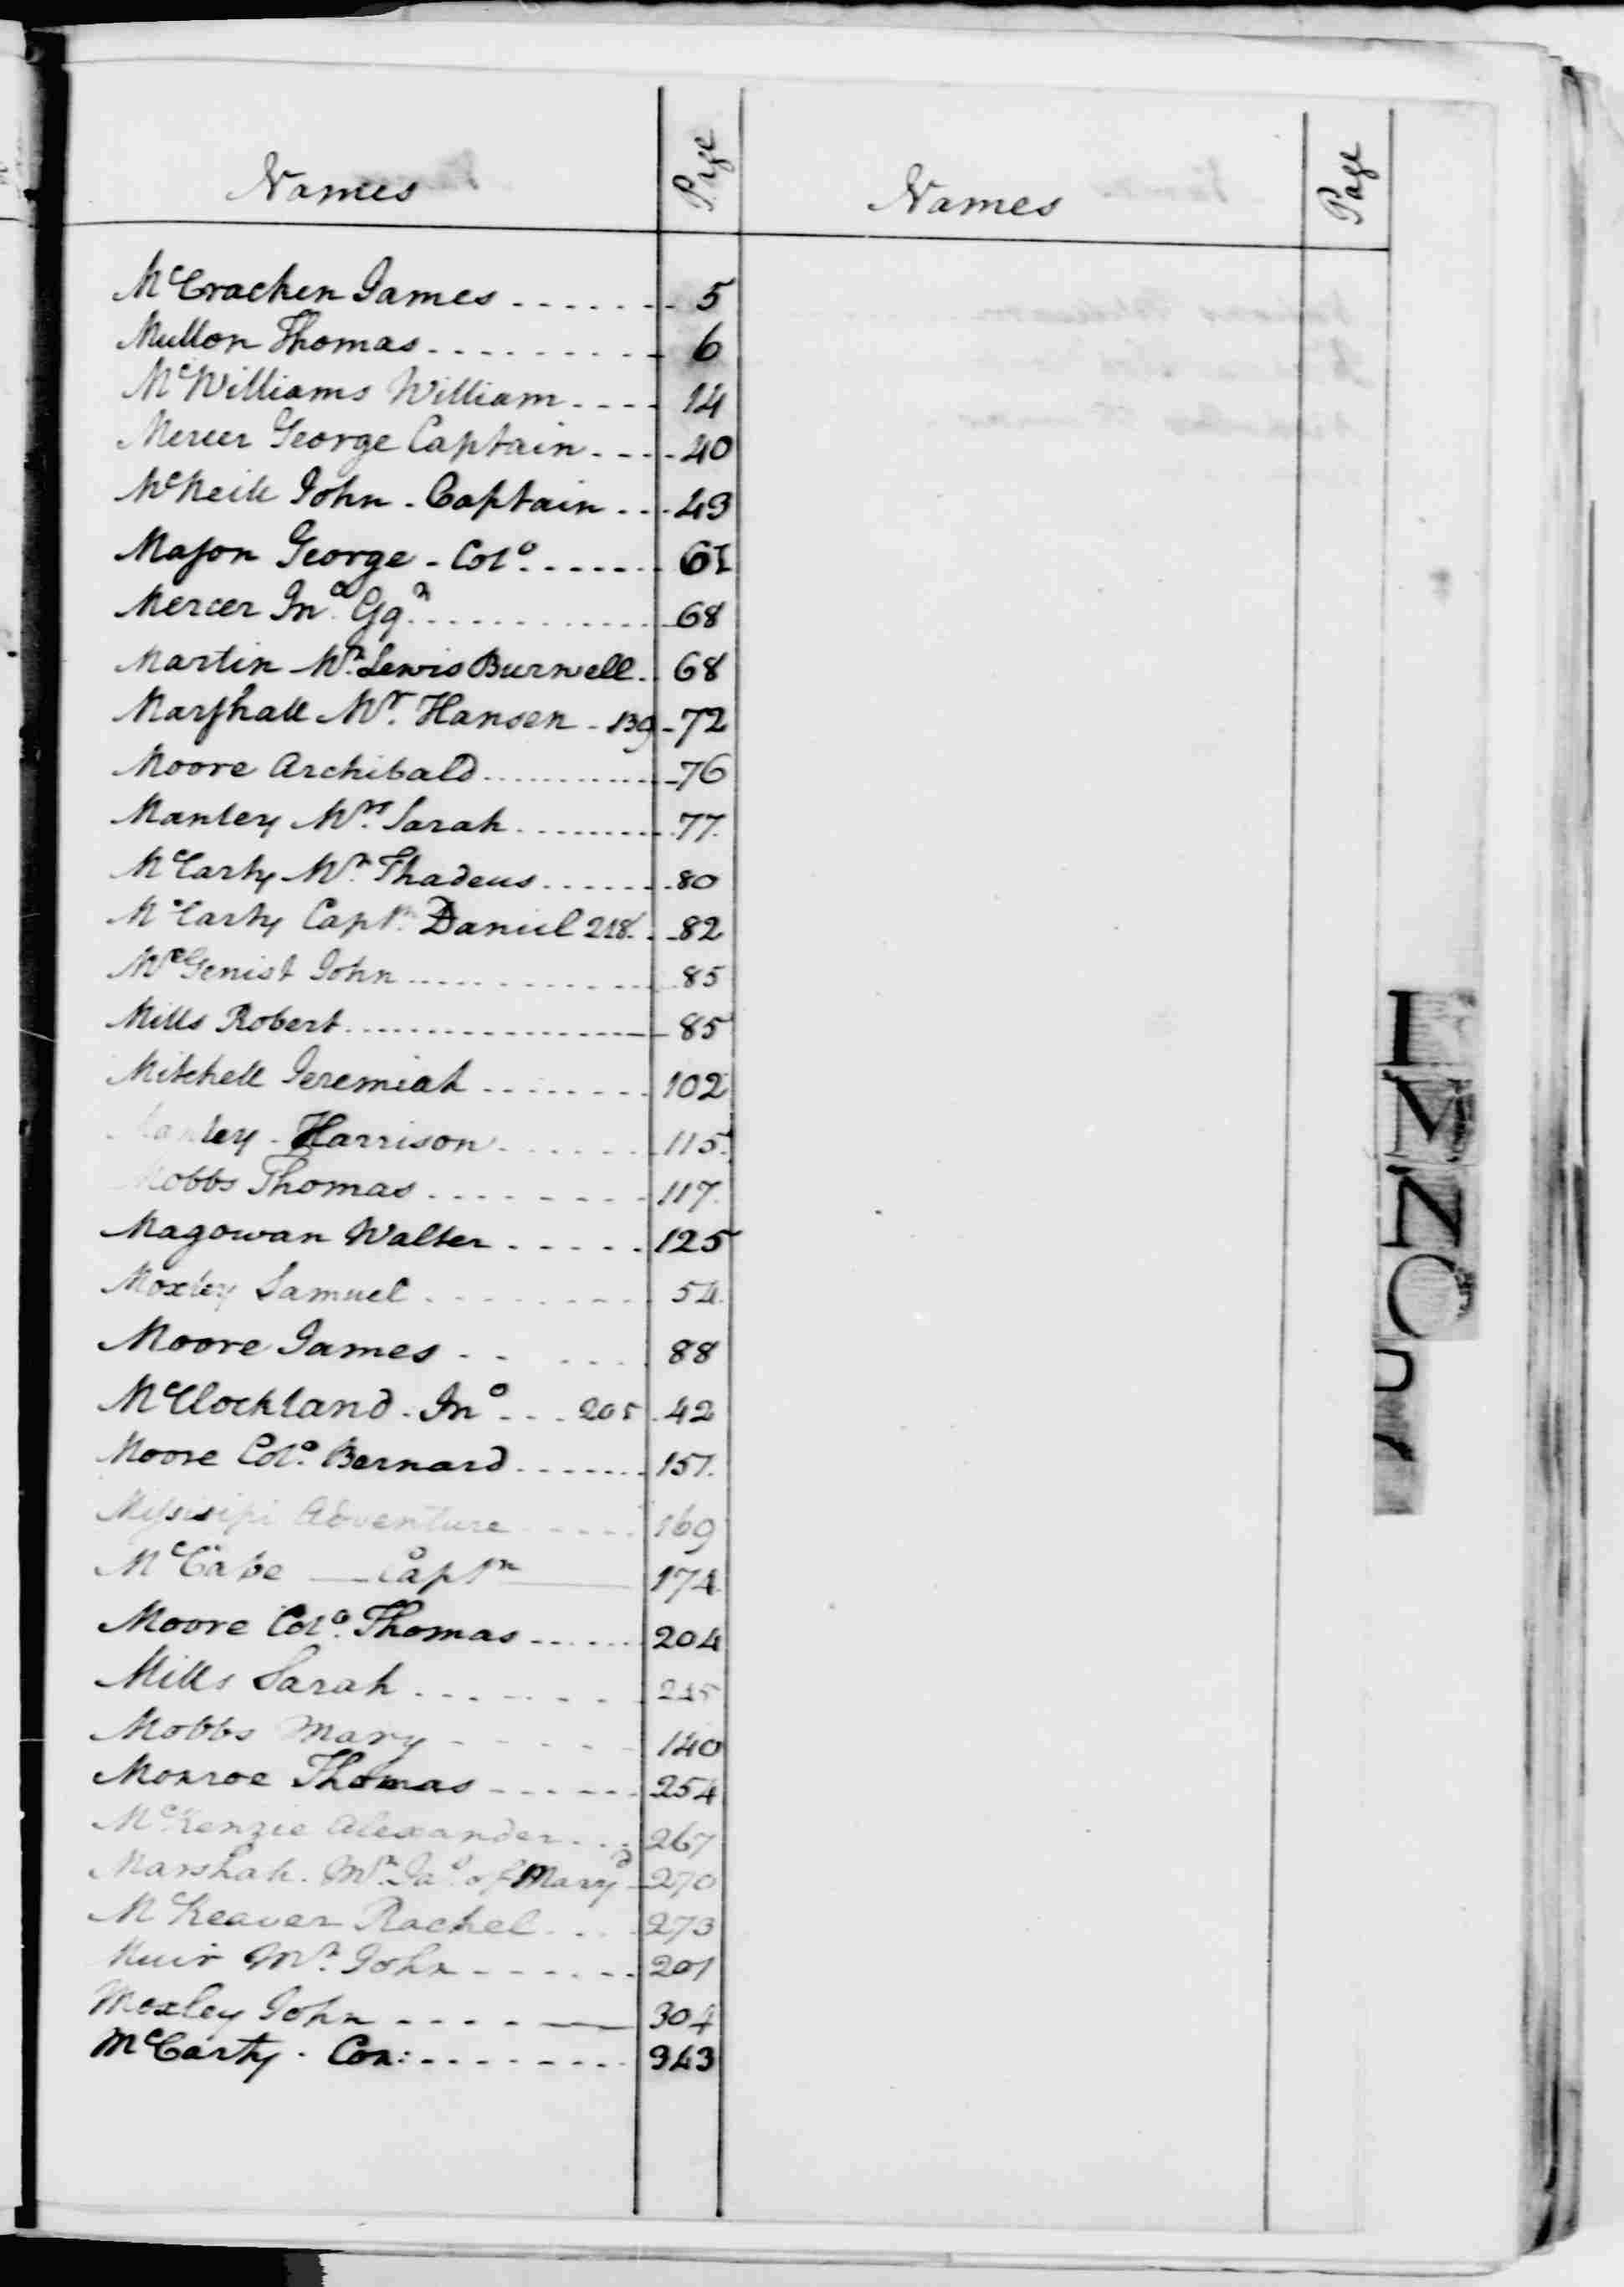 Names Page Names Page
McCracken James 5
Mullon Thomas 6
McWilliams William 14
Mercer George Captain 40
McNeill John - Captain 43
Mason George - Colo 61
Mercer Jno 68
Martin Mr. Lewis Burwell 68
Marshall Mr. Hansen - 139 - 72
Moore Archibald 76
Manley Mrs. Sarah 77
McCarty Mr. Thadeus 80
McCarty Captn. Daniel 218 82
McGenist John 85
Mills Robert 85
Mitchell Jeremiah 102
Manley - Harrison 115
Mobbs Thomas 117
Magowan Walter 125
Moxley Samuel 54
Moore James 88
McClockland - Jno 205 42
Moore Colo. Bernard 157
Missisipi Adventure 169
McCabe — Captn 174
Moore Colo. Thomas 204
Mills Sarah 245
Mobbs Mary 140
Monroe Thomas 254
McKenzie Alexander 267
Marshall. Mr. Jas. of Maryd 270
McKeaver Rachel 273
Muir Mr. John 201
Moxley John 304
McCarty - Con: 343
I
M
N
O